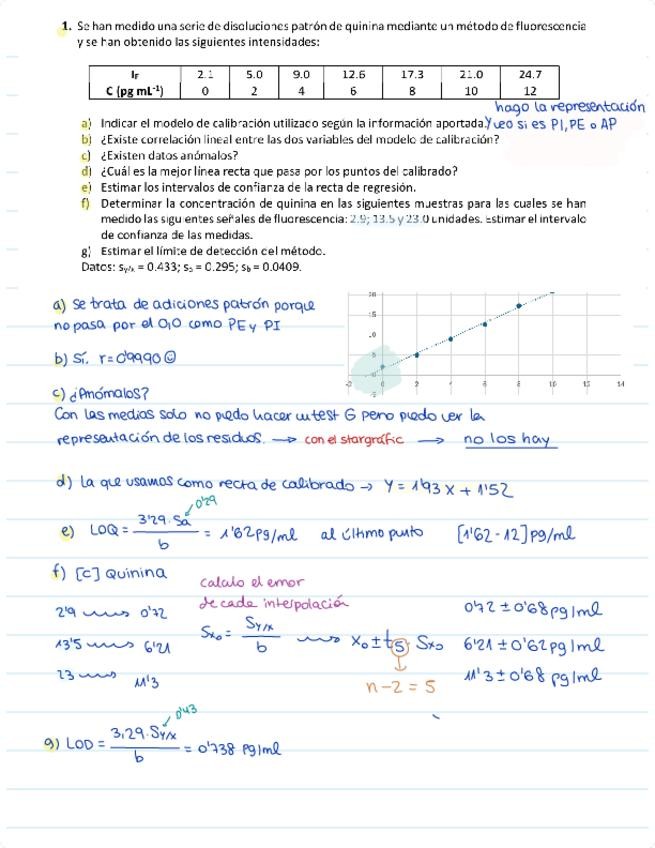 1. Se han medido una serie de disoluciones patrón de quinina mediante un método de fluorescencia
y se han obtenido las siguientes intensidades:
IF 2.1 5.0 9.0 12.6 17.3 21.0 24.7
C (pg mL-1) 0 2 4 6 8 10 12
hago la representación
a) Indicar el modelo de calibración utilizado según la información aportada. Y veo si es PI, PE o AP
b) ¿Existe correlación lineal entre las dos variables del modelo de calibración?
c) ¿Existen datos anómalos?
d) ¿Cuál es la mejor línea recta que pasa por los puntos del calibrado?
e) Estimar los intervalos de confianza de la recta de regresión.
f) Determinar la concentración de quinina en las siguientes muestras para las cuales se han
medido las siguientes señales de fluorescencia: 2.9; 13.5 y 23.0 unidades. Estimar el intervalo
de confianza de las medidas.
g) Estimar el límite de detección del método.
Datos: sy/x = 0.433; sa = 0.295; sb = 0.0409.
a) Se trata de adiciones patrón porque
no pasa por el 0,0 como PE y PI
b) Sí. r=0'9990 ☺
-2 0 2 4 6 8 10 12 14
c) ¿Anómalos?
Con las medias solo no puedo hacer un test G pero puedo ver la
representación de los residuos. → con el stargrafic → no los hay
d) La que usamos como recta de calibrado → Y = 1'93 X + 1'52
0'29
e) LOQ = 3'29·Sa / b = 1'62 pg/ml al último punto [1'62 - 12] pg/ml
f) [c] Quinina
calculo el error
de cada interpolación
2'9 0'72 0'72 ± 0'68 pg/ml
13'5 6'21 Sx0 = Sy/x / b X0 ± t5· Sx0 6'21 ± 0'62 pg/ml
23 11'3 11'3 ± 0'68 pg/ml
n-2 = 5
0'43
g) LOD = 3,29·Sy/x / b = 0'738 pg/ml